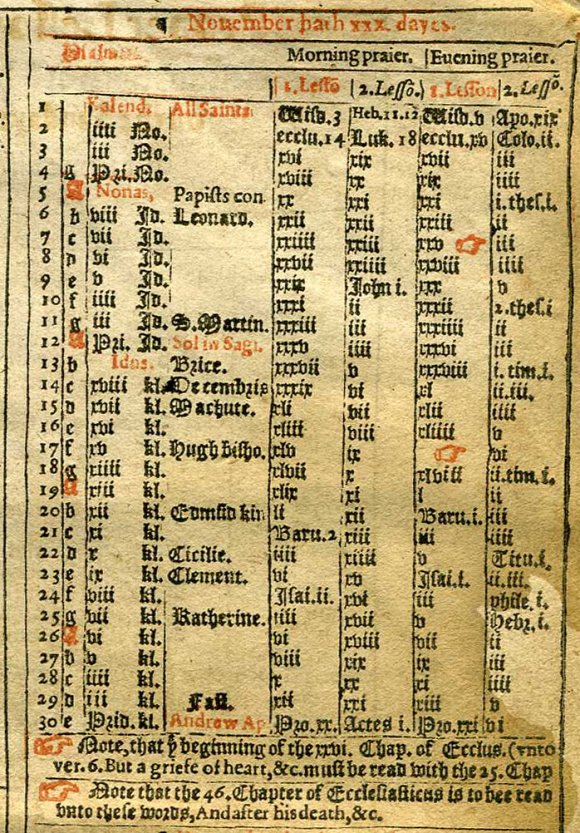 Nouember hath xxx. dayes.
Psalmes
Morning praier. Euening praier.
1. Lessō 2. Lessō. 1. Lesson 2. Lessō.
1 Kalend. All Saints Wisd. 3 Heb. 11. 12 Wisd. v Apo. xix
2 iiii No. ecclu. 14 Luk. 18 ecclu. xv Colo. ii.
3 iii No. xvi xix xvii iii
4 g Pri. No. xviii xx xix iiii
5 A Nonas, Papists con xx xxi xxi i. thes. i.
6 b viii Jd. Leonard. xxii xxii xxiii ii
7 c vii Jd. xxiiii xxiii xxv ☞ iii
8 d vi Jd. xxvii xxiiii xxviii iiii
9 e v Jd. xxix John i. xxx v
10 f iiii Jd. xxxi ii xxxii 2. thes. i
11 g iii Jd. S. Martin. xxxiii iii xxxiiii ii
12 a Pri. Jd. Sol in Sagi. xxxv iiii xxxvi iii
13 b Idus. Brice. xxxvii v xxxviii i. tim. i.
14 c xviii kl. Decembris xxxix vi xl ii. iii.
15 d xvii kl. Machute. xli vii xlii iiii
16 e xvi kl. xliii viii xliiii v
17 f xv kl. Hugh bisho. xlv ix ☞ vi
18 g xiiii kl. xlvii x xlviii ii. tim. i.
19 a xiii kl. xlix xi l ii
20 b xii kl. Edmūd kin li xii Baru. i. iii
21 c xi kl. Baru. 2 xiii iii iiii
22 d x kl. Cicilie. iiii xiiii v Titu. i.
23 e ix kl. Clement. vi xv Isai. i. ii. iii.
24 f viii kl. Isai. ii. xvi iii phile. i.
25 g vii kl. Katherine. iiii xvii v Hebr. i.
26 a vi kl. vi xviii vii ii
27 b v kl. viii xix ix iii
28 c iiii kl. x xx xi iiii
29 d iii kl. Fast. xii xxi xiii v
30 e Prid. kl. Andrew Ap Pro. xx. Actes i. Pro. xxi vi
☞ Note, that yͤ beginning of the xxvi. Chap. of Ecclus. (vnto
ver. 6. But a griefe of heart, &c. must be read with the 25. Chap
☞ Note that the 46. Chapter of Ecclesiasticus is to bee read
vnto these words, And after his death, &c.